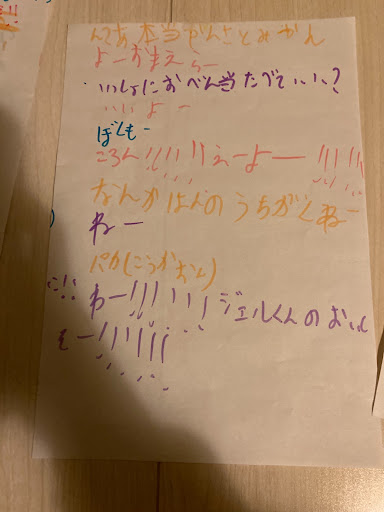 んであ本当ぜんさとみかん
よーおまえらー
いっしょにおべん当たべていい?
いいよー
ぼくもー
ころん!!!!!!えーよー!!!!!
なんかはんのうちがくねー
ねー
パカ(こうかおん)
わー!!!!!!ジェルくんのおいし
そー!!!!!!